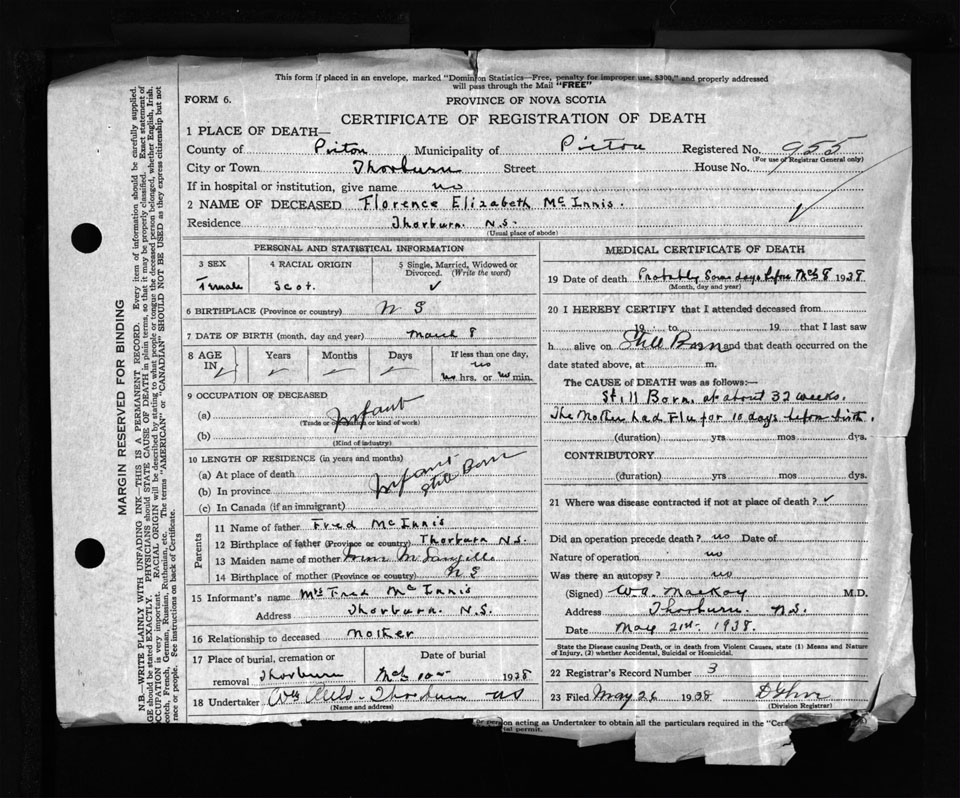 This form if placed in an envelope, marked "Dominion Statistics—Free, penalty for improper use, $300," and properly addressed
will pass through the Mail "FREE"
FORM 6.
PROVINCE OF NOVA SCOTIA
CERTIFICATE OF REGISTRATION OF DEATH
1 PLACE OF DEATH—
County of Pictou Municipality of Pictou Registered No. 955
(For use of Registrar General only)
City or Town Thorburn Street House No.
If in hospital or institution, give name no
2 NAME OF DECEASED Florence Elizabeth McInnis.
Residence Thorburn. N.S.
(Usual place of abode)
PERSONAL AND STATISTICAL INFORMATION
3 SEX 4 RACIAL ORIGIN 5 Single, Married, Widowed or Divorced. (Write the word)
Female Scot. ✓
6 BIRTHPLACE (Province or country) N S
7 DATE OF BIRTH (month, day and year) March 8
8 AGE IN Years Months Days If less than one day,
no
no hrs. or no min.
9 OCCUPATION OF DECEASED
(a) Infant
(Trade or occupation or kind of work)
(b)
(Kind of industry)
10 LENGTH OF RESIDENCE (in years and months)
(a) At place of death Infant
(b) In province Still Born
(c) In Canada (if an immigrant)
Parents
11 Name of father Fred McInnis
12 Birthplace of father (Province or country) Thorburn N.S.
13 Maiden name of mother
14 Birthplace of mother (Province or country) N S
15 Informant's name Mrs Fred McInnis
Address Thorburn. N.S.
16 Relationship to deceased Mother
17 Place of burial, cremation or removal Thorburn Date of burial 1938
18 Undertaker Thorburn NS
(Name and address)
MEDICAL CERTIFICATE OF DEATH
19 Date of death Probably Some days before Mch 8 1938
(Month, day and year)
20 I HEREBY CERTIFY that I attended deceased from
19 to 19 that I last saw
h alive on Still Born and that death occurred on the
date stated above, at m.
The CAUSE OF DEATH was as follows:—
Still Born at about 32 weeks.
The Mother had Flu for 10 days before birth.
(duration) yrs mos dys.
CONTRIBUTORY.
(duration) yrs mos dys.
21 Where was disease contracted if not at place of death? ✓
Did an operation precede death? no Date of
Nature of operation no
Was there an autopsy? no
(Signed) W.A. MacKay M.D.
Address Thorburn. N.S.
Date May 21st 1938.
State the Disease causing Death, or in death from Violent Causes, state (1) Means and Nature
of Injury, (2) whether Accidental, Suicidal or Homicidal.
22 Registrar's Record Number 3
23 Filed May 26 1938
(Division Registrar)
person acting as Undertaker to obtain all the particulars required in the "Cer
ial permit.
MARGIN RESERVED FOR BINDING
N.B.—WRITE PLAINLY WITH UNFADING INK—THIS IS A PERMANENT RECORD. Every item of information should be carefully supplied.
GE should be stated EXACTLY. PHYSICIANS should STATE CAUSE OF DEATH in plain terms, so that it may be properly classified. Exact statement of
OCCUPATION is very important. RACIAL ORIGIN will be described by stating to what people or tongue the deceased person belonged, whether English, Irish,
cotch, French, German, Russian, Ruthenian, etc. The terms "AMERICAN" or "CANADIAN" SHOULD NOT BE USED as they express citizenship but not
race or people. See instructions on back of Certificate.